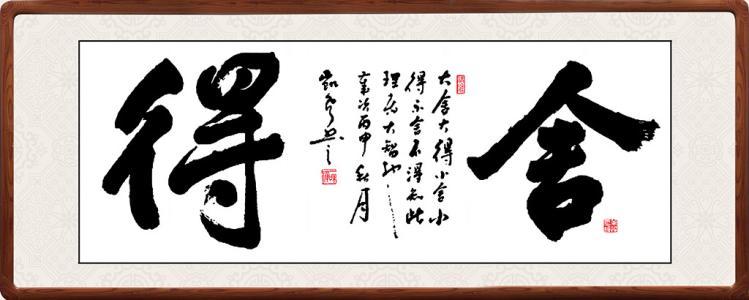 舍
大舍大得小舍小
得不舍不得知此
理为大智也
岁次丙申秋月
得